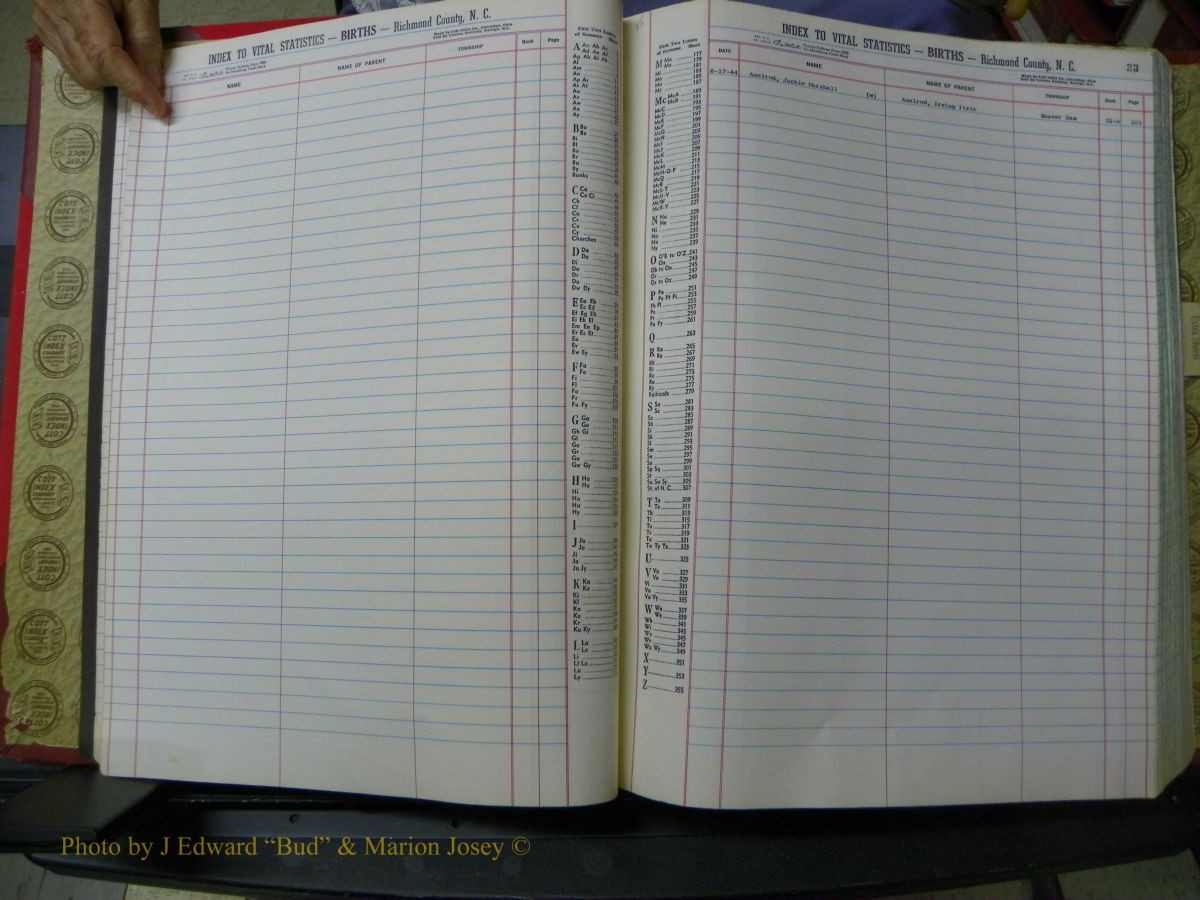 INDEX TO VITAL STATISTICS — BIRTHS — Richmond County, N. C.
NAME
NAME OF PARENT
TOWNSHIP
Book
Page
First Two Letters
of Surname
A Aa Ab Ac
Ad Ae Af
Ag Ah Ai Ak
Al
Am
An
Ao
Ap Ar
As At
Au
Av
Aw
Ax
Ay
B Ba
Be
Bi
Bl
Bo
Br
Bu
By
Banks
C Ca
Ce Ci
Ch
Cl
Co
Cr
Cu
Cy
Churches
D Da
De
Di
Do
Dr
Du
Dw Dy
E Ea Eb
Ec Ed
Ef Eg Eh
Ei Ek El
Em En Ep
Er Es Et
Eu
Ev
Ew Ey
F Fa
Fe
Fi
Fl
Fo
Fr
Fu Fy
G Ga
Ge
Gh Gi
Gl
Go
Gr
Gu
Gw Gy
H Ha
He
Hi
Ho
Hu
Hy
I
J Ja
Je
Ji
Jo
Ju Jy
K Ka
Ke
Ki
Kl
Kn
Ko
Kr
Ku Ky
L La
Le
Li
Ll Lo
Lu
Ly
First Two Letters
of Surname Sheet
M Ma 177
Me 179
Mi 183
Mo 185
Mu 187
Mc McA 189
McB 191
McC 193
McD 195
McE 197
McF 199
McG 201
McH 203
McI 205
McJ 207
McK 209
McL 211
McM 213
McN-O-P 215
McQ 217
McR 219
McS-T 221
McU-V 223
McW 225
McX-Y 227
N Na 229
Ne 231
Ni 233
No 235
Nu 237
Ny 239
O O'B to O'Z 241
Oa 243
Ob to On 245
Or 247
Os to Oz 249
P Pa 251
Pe Pf Pi 253
Ph Pl 255
Po 257
Pr 259
Pu Py 261
Q 263
R Ra 265
Re 267
Rh 269
Ri 271
Ro 273
Ru 275
Ry 277
Railroads 279
S Sa 281
Sc 283
Se 285
Sh 287
Si 289
Sk 291
Sl 293
Sm 295
Sn 297
So 299
Sp Sq 301
St 303
Su Sv Sy 305
St. of N. C. 307
T Ta 309
Te 311
Th 313
Ti 315
To 317
Tr 319
Tu 321
Tw Ty Tz 323
U 325
V Va 327
Ve 329
Vi 331
Vo 333
Vu Vy 335
W Wa 337
We 339
Wh 341
Wi 343
Wo 345
Wr 347
Wu Wy 349
X 351
Y 353
Z 355
INDEX TO VITAL STATISTICS — BIRTHS — Richmond County, N. C.
23
DATE
NAME
NAME OF PARENT
TOWNSHIP
Book
Page
8-17-44 Axelrod, Jackie Marshall (W) Axelrod, Irving Itzic Beaver Dam 32-4 165
COTT
INDEX
COMPANY
Photo by J Edward “Bud” & Marion Josey ©